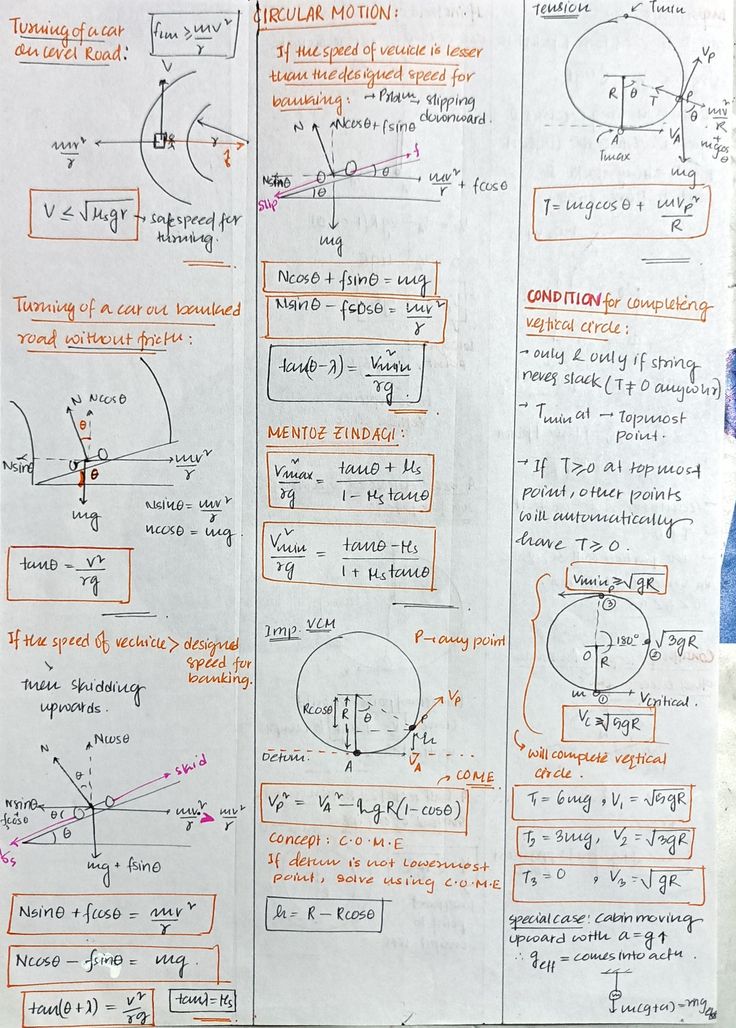 Turning of a car
on level Road:
flim ≥ mv²/r
V
mv²/r
r
f
V ≤ √μsgr → safe speed for
turning.
Turning of a car on banked
road without frictn:
N Ncosθ
θ
Nsinθ
mv²/r
θ
mg
Nsinθ = mv²/r
ncosθ = mg.
tanθ = v²/rg
If the speed of vechicle > designed
speed for
banking.
then skidding
upwards.
N
Ncosθ
θ
skid
Nsinθ
+
fcosθ
θ
θ
mv²/r > mv²/r
fs
mg + fsinθ
Nsinθ + fcosθ = mv²/r
Ncosθ - fsinθ = mg.
tan(θ+λ) = v²/rg
tanλ = μs
CIRCULAR MOTION:
If the speed of vehicle is lesser
than the designed speed for
banking: → Prblm → slipping
downward.
N
Ncosθ + fsinθ
f
Nsinθ
θ
θ
mv²/r + fcosθ
slip
mg
Ncosθ + fsinθ = mg
Nsinθ - fcosθ = mv²/r
tan(θ-λ) = V²min/rg
MENTOZ ZINDAGI:
V²max/rg = tanθ + μs / 1 - μstanθ
V²min/rg = tanθ - μs / 1 + μstanθ
Imp. VCM
P → any point
Rcosθ
R
θ
P
VP
h
Datum:
A
VA
COME
VP² = VA² - 2gR(1-cosθ)
concept: C.O.M.E
If datum is not lowermost
point, solve using C.O.M.E
h = R - Rcosθ
Tension
Tmin
VP
R
θ
T
P
θ
mv²/R
+
mgcosθ
A
VA
Tmax
mg
T = mgcosθ + mVP²/R
CONDITION for completeng
vertical circle:
→ only & only if string
never slack (T ≠ 0 anywhr)
→ Tmin at → Topmost
point.
→ If T ≥ 0 at top most
point, other points
will automatically
have T ≥ 0.
Vminp ≥ √gR
③
180°
② √3gR
O
R
m
①
Vcritical.
Vc ≥ √5gR
will complete vertical
circle.
T1 = 6mg, V1 = √5gR
T2 = 3mg, V2 = √3gR
T3 = 0, V3 = √gR
special case: cabin moving
upward with a = g↑
∴ geff = comes into actn.
m(g+a) = mgeff